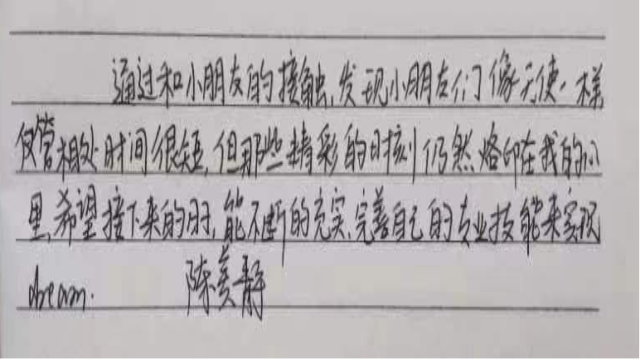 通过和小朋友的接触,发现小朋友们像天使一样,
尽管相处时间很短,但那些精彩的时刻仍然烙印在我的心
里,希望接下来的时,能不断的充实、完善自己的专业技能来实现
dream. 陈美静